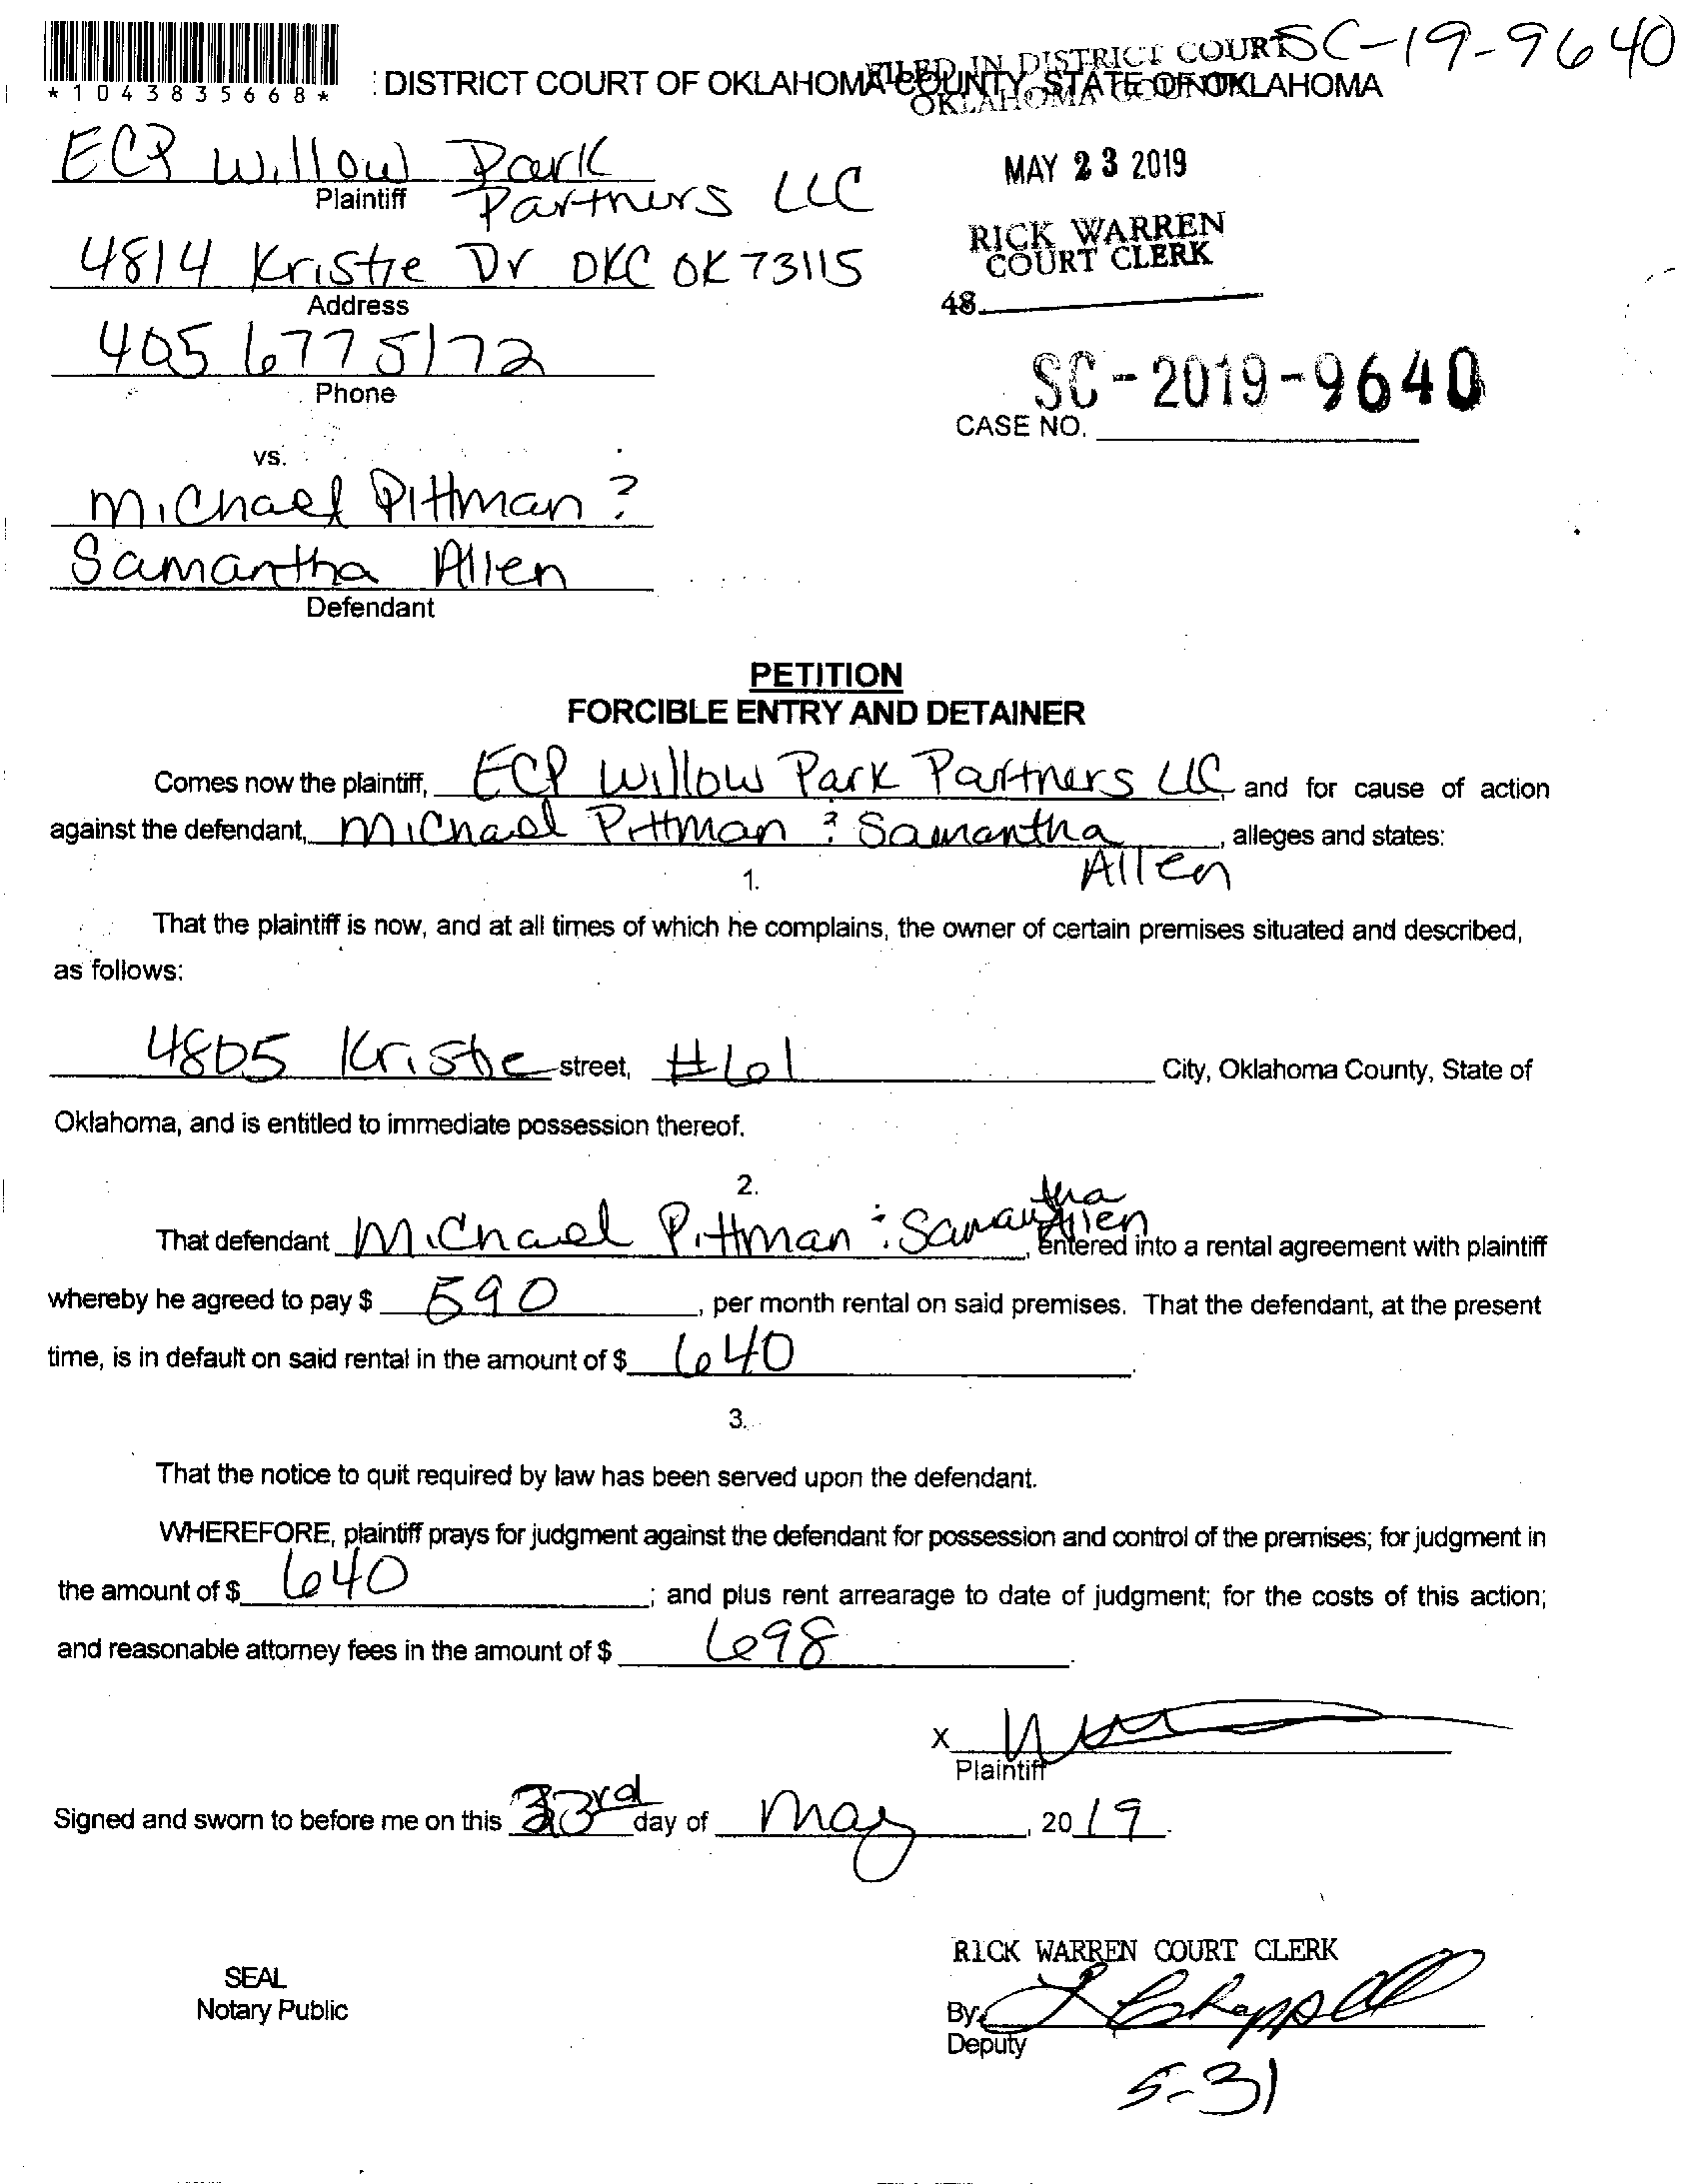 SC-19-9640
*1043835668*
FILED IN DISTRICT COURT
DISTRICT COURT OF OKLAHOMA COUNTY, STATE OF OKLAHOMA
OKLAHOMA COUNTY
ECP Willow Park
Plaintiff
Partners LLC
MAY 23 2019
RICK WARREN
COURT CLERK
4814 Kristie Dr OKC OK 73115
Address
48
405 6775172
Phone
SC-2019-9640
CASE NO.
vs.
Michael Pittman ?
Samantha Allen
Defendant
PETITION
FORCIBLE ENTRY AND DETAINER
Comes now the plaintiff, ECP Willow Park Partners LLC and for cause of action
against the defendant, Michael Pittman ? Samantha, alleges and states:
Allen
1.
That the plaintiff is now, and at all times of which he complains, the owner of certain premises situated and described,
as follows:
4805 Kristie street, #61 City, Oklahoma County, State of
Oklahoma, and is entitled to immediate possession thereof.
2.
That defendant Michael Pittman : Samantha Allen, entered into a rental agreement with plaintiff
whereby he agreed to pay $ 590, per month rental on said premises. That the defendant, at the present
time, is in default on said rental in the amount of $ 640.
3.
That the notice to quit required by law has been served upon the defendant.
WHEREFORE, plaintiff prays for judgment against the defendant for possession and control of the premises; for judgment in
the amount of $ 640; and plus rent arrearage to date of judgment; for the costs of this action;
and reasonable attorney fees in the amount of $ 698.
X
Plaintiff
Signed and sworn to before me on this 23rd day of May, 2019.
RICK WARREN COURT CLERK
SEAL
Notary Public
By: L Chappell
Deputy
5-31